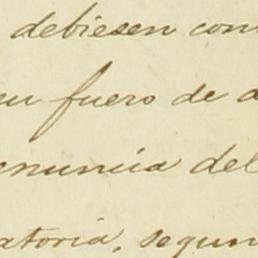 debiesen con
su fuero de a
enuncia del
atoria, segun